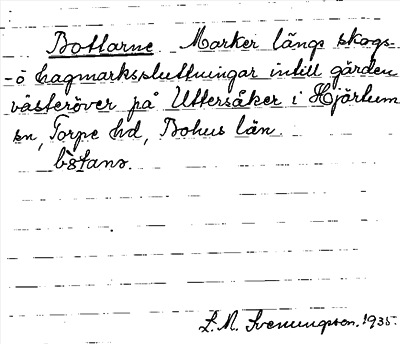 Bottarne Marker längs skogs-
-o hagmarkssluttningar intill gården
västeröver på Uttersåker i Hjärtum
sn, Torpe hd, Bohus län.
bòtanə.
L. M. Svenungsson. 1935.